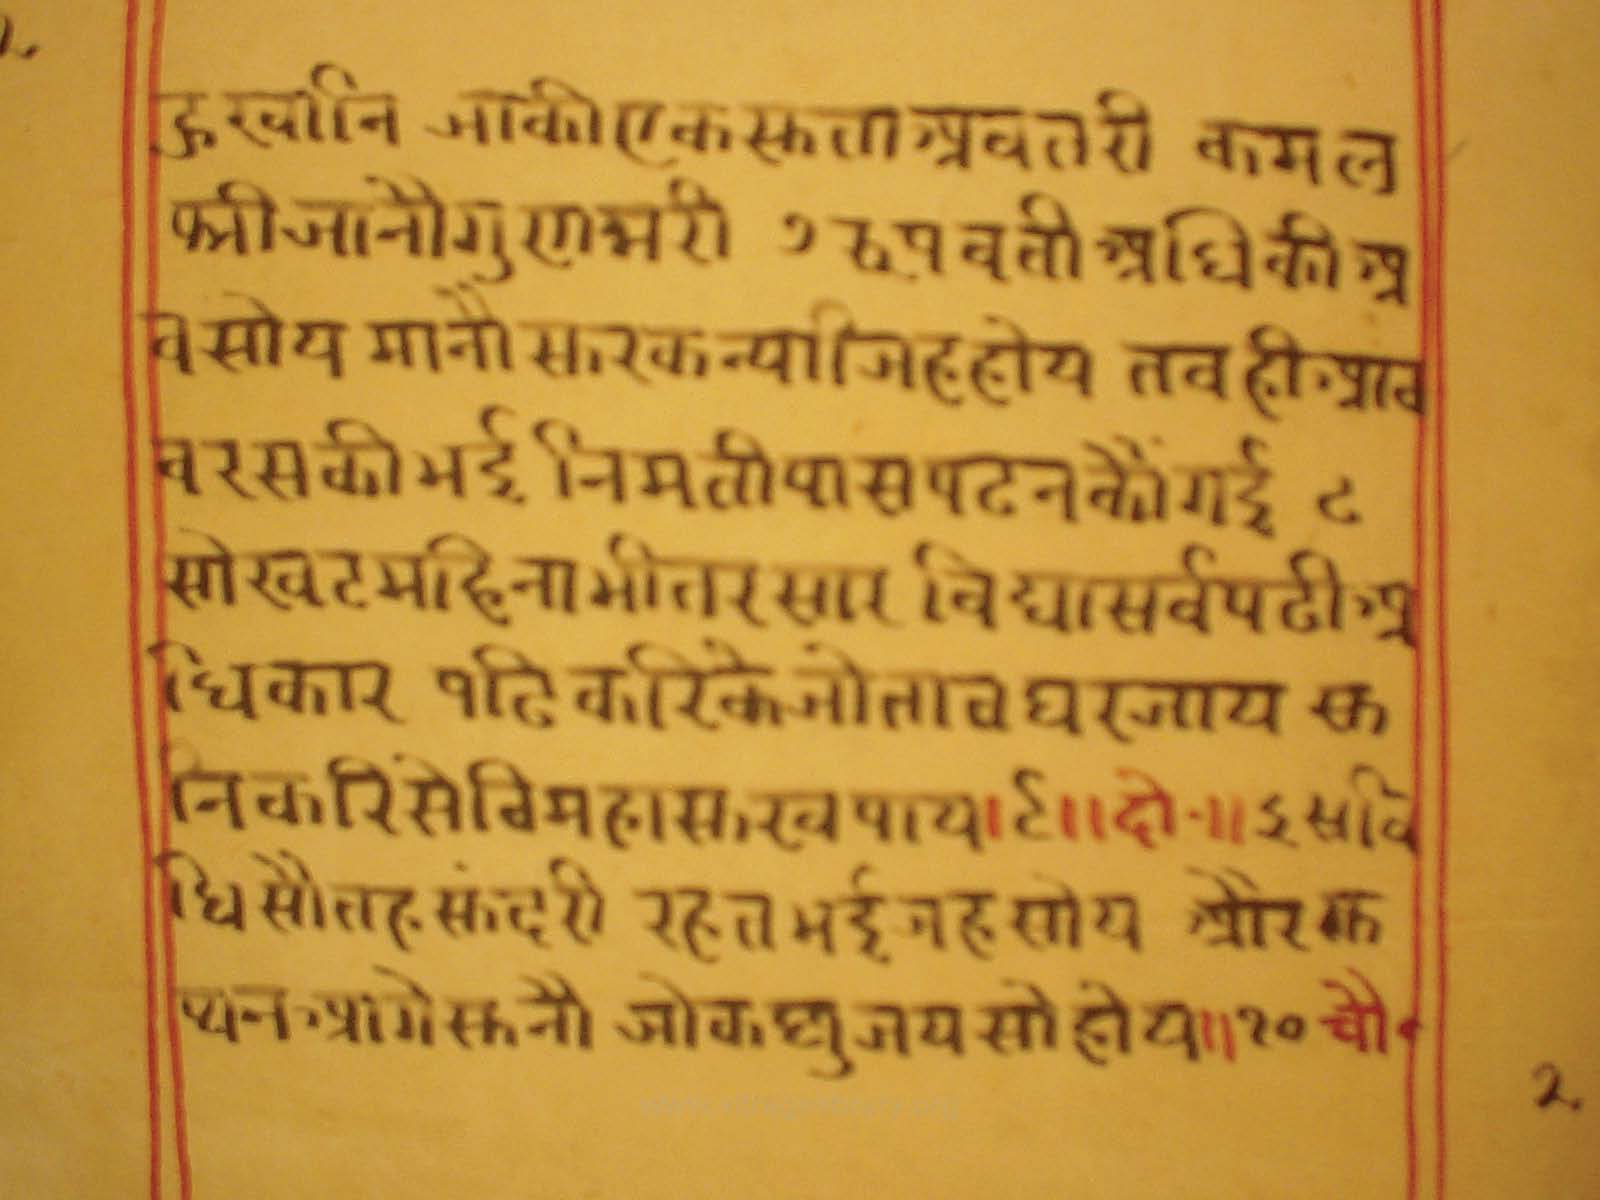 रुखांनि जाकीएकसुताअवतरी कमल
श्रीजानौगुणभरी ७ रूपवतीअधिकीअ
वसोय मानौसुरकन्यांजिहहोय तवहीआठ
वरसकीभई निमतीपासपढनकौंगई ८
सोखटमहिनाभीतरसार विद्यासर्वपढीअ
धिकार पढिकरिकैजोतावघरजाय सु
निकरिसेविमहासुखपाय।९॥दो॰॥इसवि
धिसौतहसुंदरी रहतभईजहसोय औरक
थनआगेसुनौ जोकछुजयसोहोय॥१०चौ॰
2.